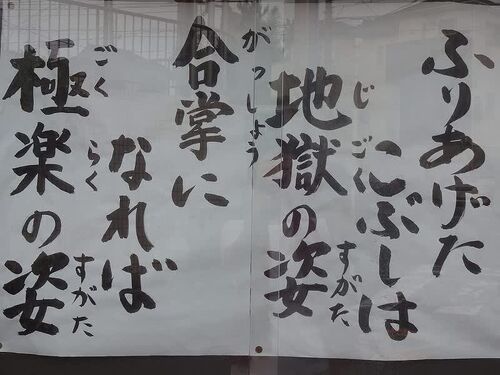 ふりあげた
こぶしは
地獄の姿
じごく
すがた
合掌に
がっしょう
なれば
極楽の姿
ごくらく
すがた